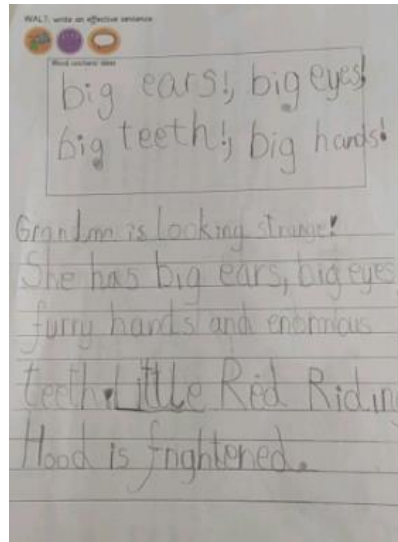 WALT: write an effective sentence
Word catchers/ ideas
big ears!, big eyes!
big teeth!, big hands!
Grandma is looking strange!
She has big ears, big eyes
furry hands and enormous
teeth. Little Red Riding
Hood is frightened.